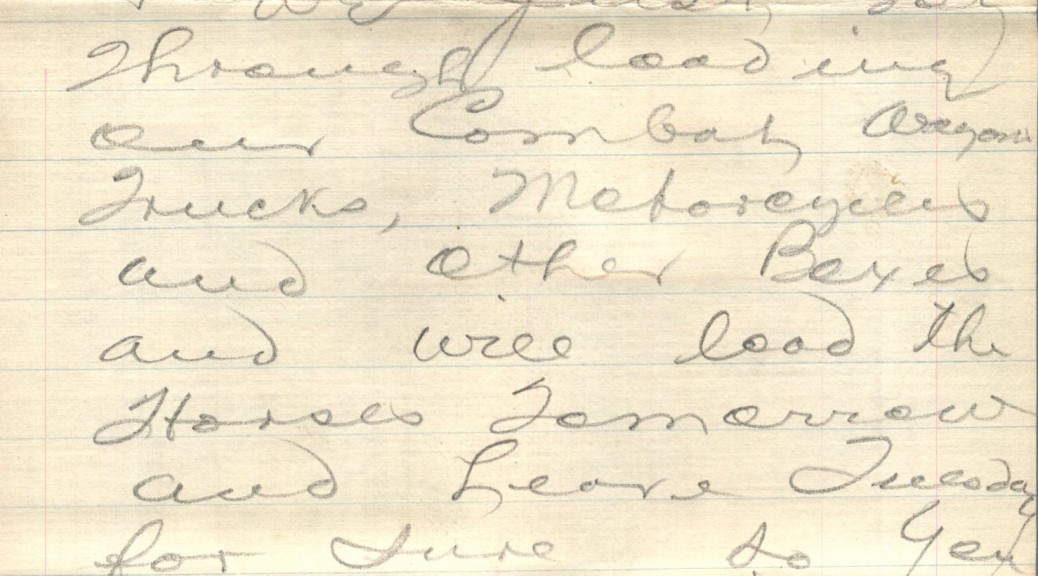 Through loading
our Combat Wagons
Trucks, Motorcycles
and other Boxes
and will load the
Horses Tomorrow
and Leave Tuesday
for Sure so You